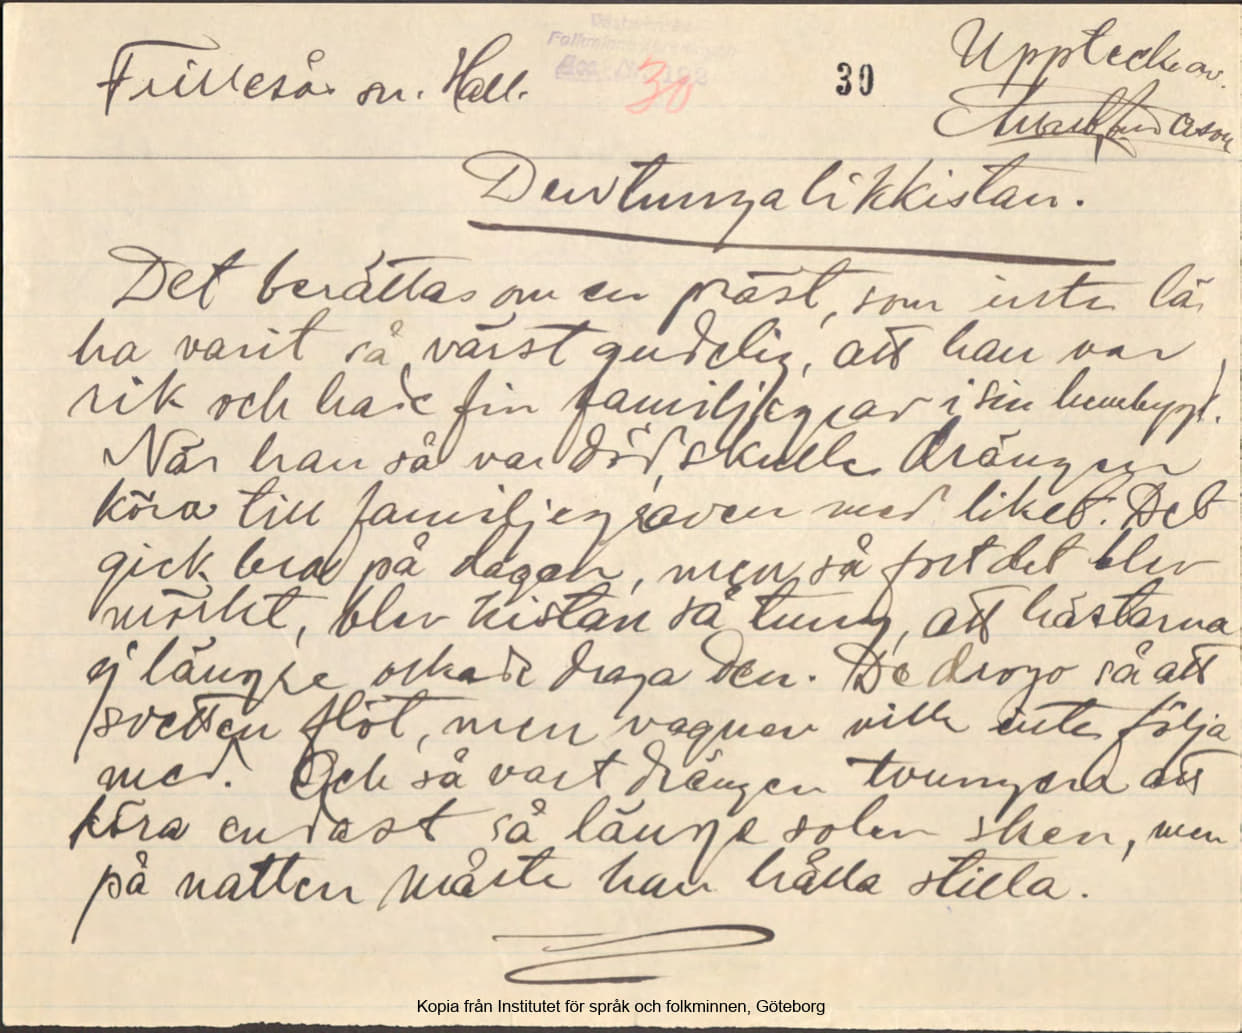 Frillesås sn. Hall.
Folkminnes
30
30
Uppteckn av.
Den tunga likkistan.
Det berättas om en präst, som inte lär
ha varit så värst gudelig, att han var
rik och hade fin familjegrav i sin hembygd.
När han så var död, skulle drängen
köra till familjegraven med liket. Det
gick bra på dagen, men så fort det blev
mörkt, blev kistan så tung, att hästarna
ej längre orkade draga den. De drogo så att
svetten flöt, men vagnen ville inte följa
med. Och så vart drängen tvungen att
köra endast så länge solen sken, men
på natten måste han hålla stilla.
Kopia från Institutet för språk och folkminnen, Göteborg